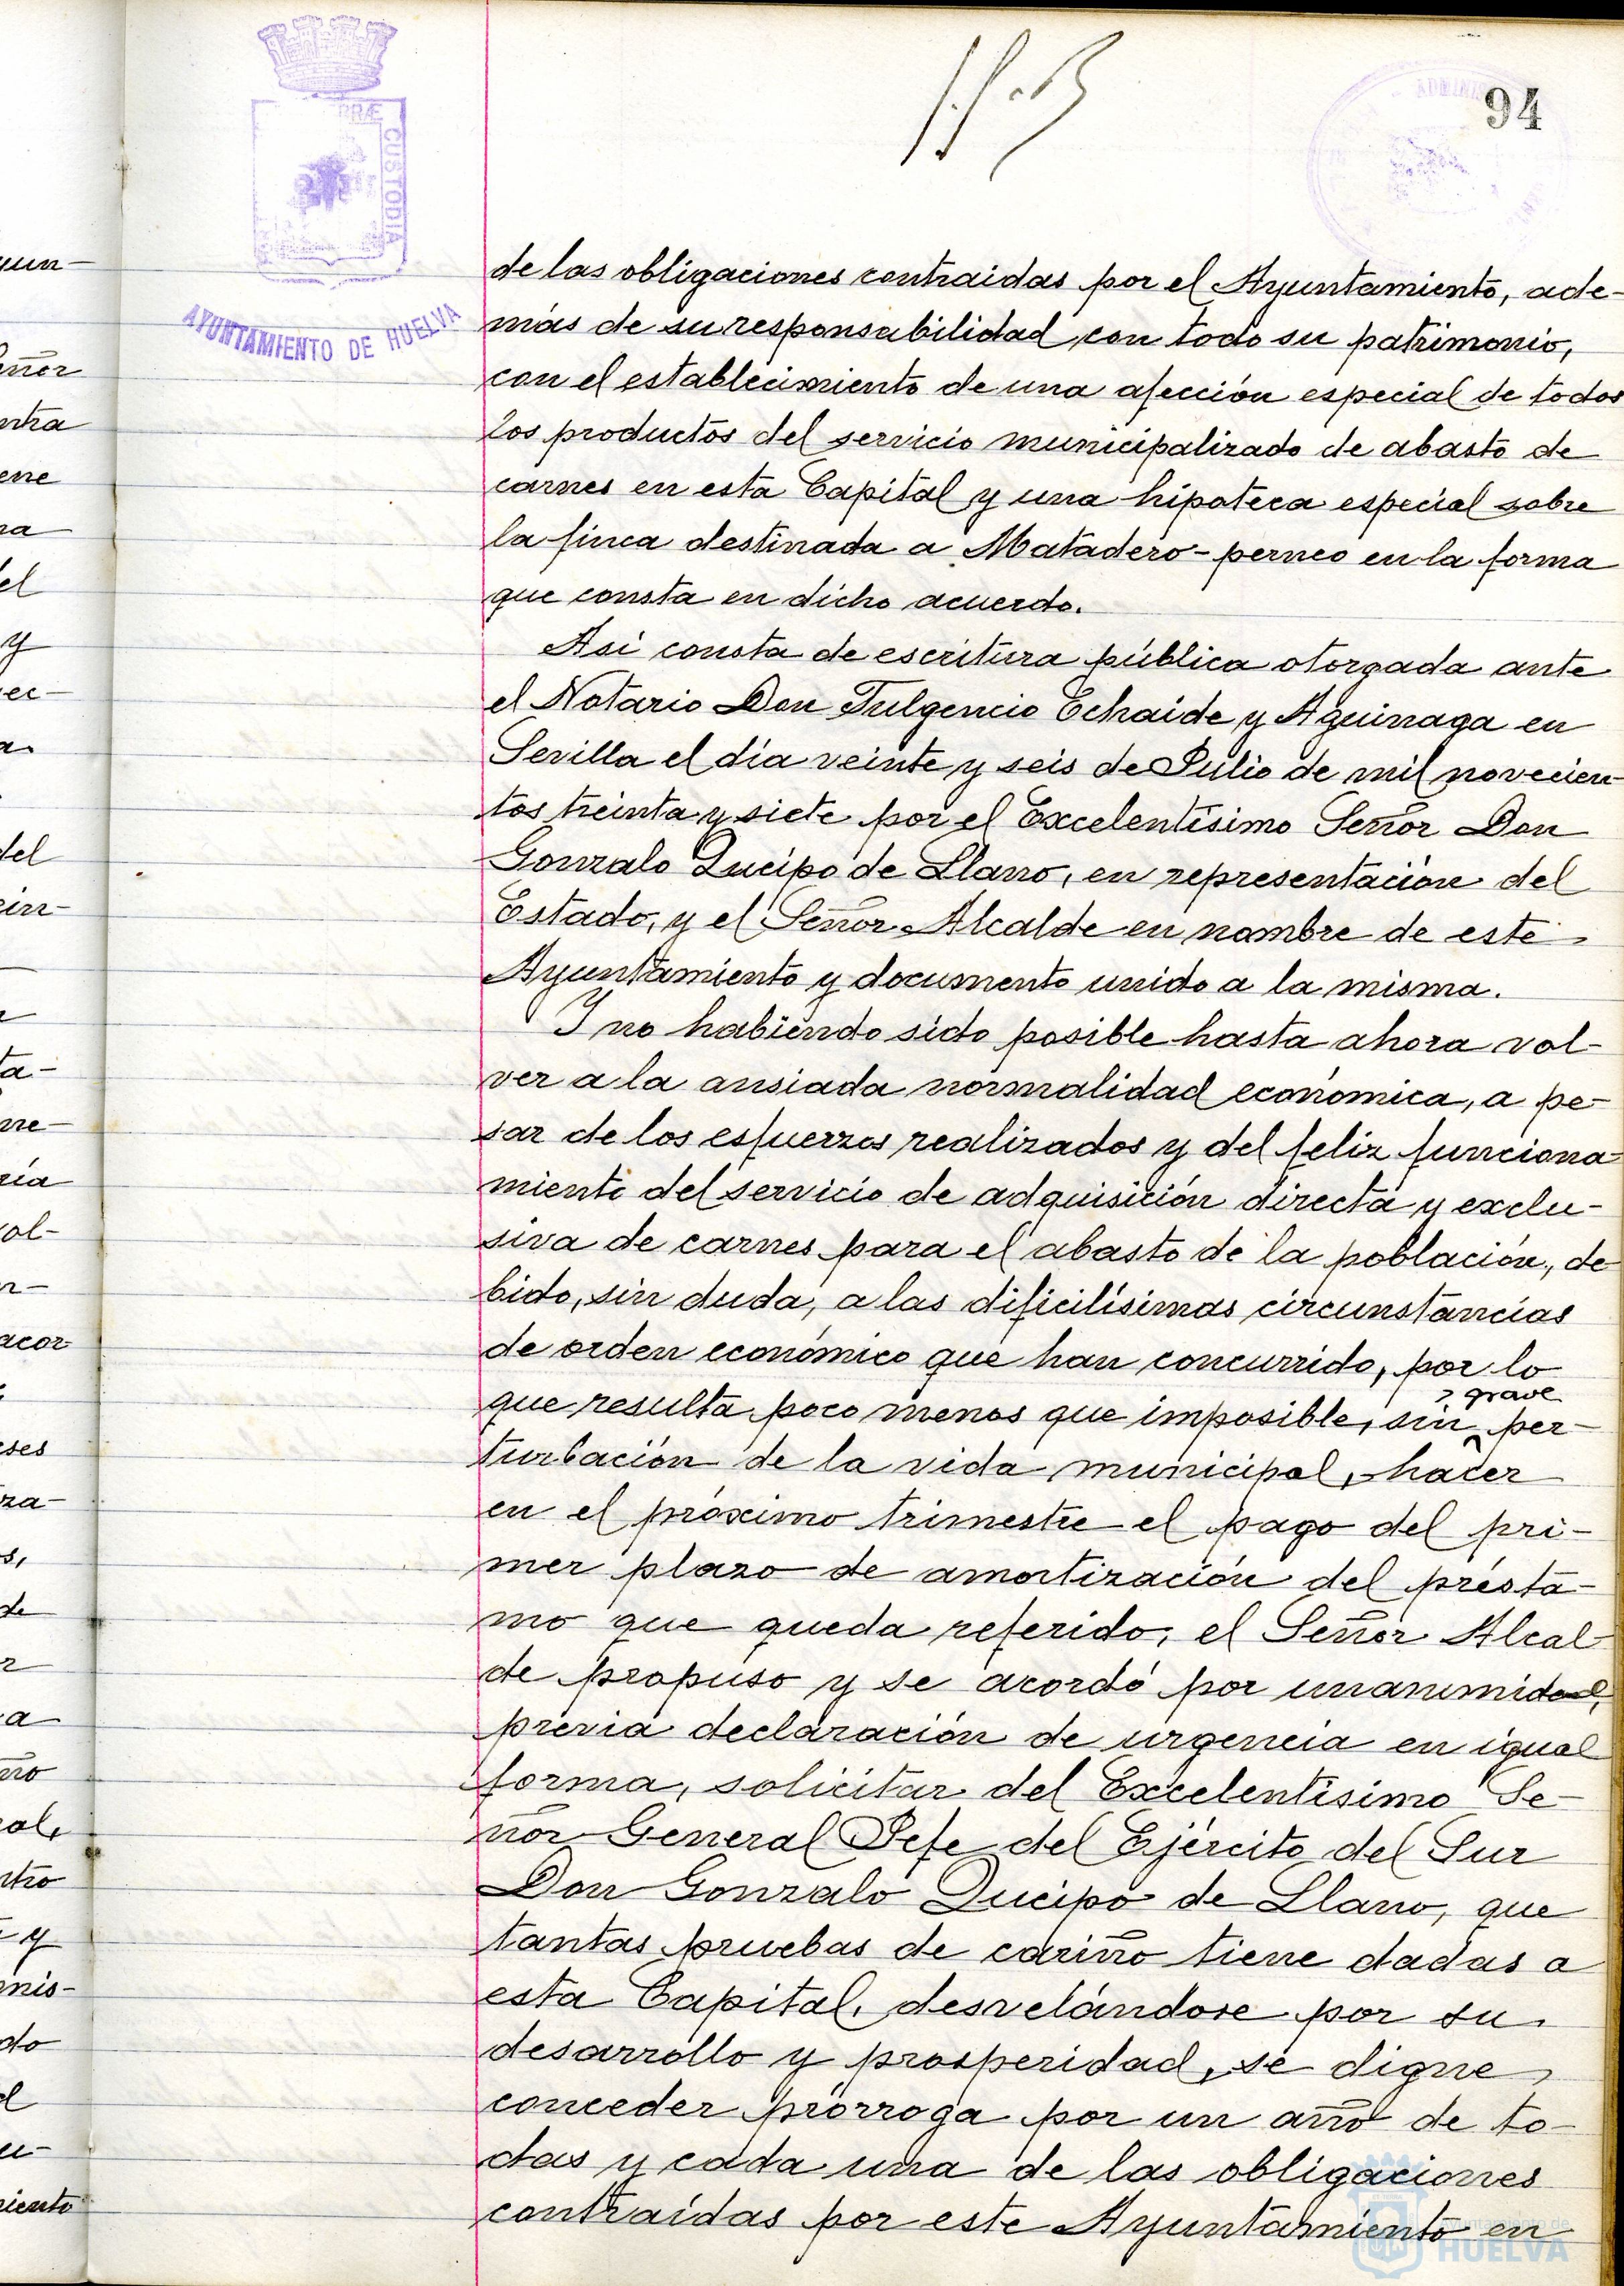 94
PRÆ
CUSTODIA
AYUNTAMIENTO DE HUELVA
de las obligaciones contraidas por el Ayuntamiento, ade-
más de su responsabilidad, con todo su patrimonio,
con el establecimiento de una afección especial de todos
los productos del servicio municipalizado de abasto de
carnes en esta Capital y una hipoteca especial sobre
la finca destinada a Matadero-perneo en la forma
que consta en dicho acuerdo.
Asi consta de escritura pública otorgada ante
el Notario Don Fulgencio Echaide y Aguinaga en
Sevilla el día veinte y seis de Julio de mil novecien-
tos treinta y siete por el Excelentísimo Señor Don
Gonzalo Queipo de Llano, en representación del
Estado, y el Señor Alcalde en nombre de este
Ayuntamiento y documento unido a la misma.
Y no habiendo sido posible hasta ahora vol-
ver a la ansiada normalidad económica, a pe-
sar de los esfuerzos realizados y del feliz funciona-
miento del servicio de adquisición directa y exclu-
siva de carnes para el abasto de la población, de-
bido, sin duda, a las dificilísimas circunstancias
de orden económico que han concurrido, por lo
que resulta poco menos que imposible, sin grave per-
turbación de la vida municipal, hacer
en el próximo trimestre el pago del pri-
mer plazo de amortización del présta-
mo que queda referido, el Señor Alcal-
de propuso y se acordó por unanimidad,
previa declaración de urgencia en igual
forma, solicitar del Excelentísimo Se-
ñor General Jefe del Ejército del Sur
Don Gonzalo Queipo de Llano, que
tantas pruebas de cariño tiene dadas a
esta Capital, desvelándose por su
desarrollo y prosperidad, se digne
conceder prórroga por un año de to-
das y cada una de las obligaciones
contraídas por este Ayuntamiento en
Ayuntamiento de
HUELVA